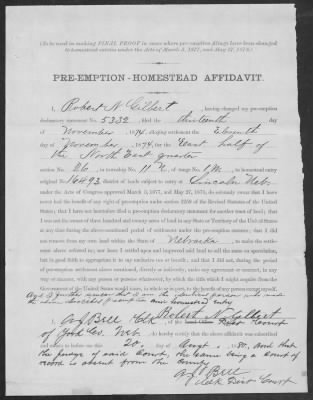 (To be used in making FINAL PROOF in cases where pre-emption filings have been changed
to homestead entries under the Acts of March 3, 1877, and May 27, 1878.)
PRE-EMPTION-HOMESTEAD AFFIDAVIT.
I, Robert N. Gilbert, having changed my pre-emption
declaratory statement No. 5332, filed the thirteenth day
of November 1874, alleging settlement the Eleventh
day of November 1874, for the East half of
the North East quarter
section 26, in township 11 N, of range 1 W, to homestead entry
original No. 16493 district of lands subject to entry at Lincoln Neb
under the Acts of Congress approved March 3, 1877, and May 27, 1878, do solemnly swear that I have
never had the benefit of any right of pre-emption under section 2259 of the Revised Statutes of the United
States; that I have not heretofore filed a pre-emption declaratory statement for another tract of land; that
I was not the owner of three hundred and twenty acres of land in any State or Territory of the United States
at any time during the above-mentioned period of settlement under the pre-emption statute; that I did
not remove from my own land within the State of Nebraska, to make the settle-
ment above referred to, nor have I settled upon and improved said land to sell the same on speculation,
but in good faith to appropriate it to my exclusive use or benefit; and that I did not, during the period
of pre-emption settlement above mentioned, directly or indirectly, make any agreement or contract, in any
way or manner, with any person or persons whatsoever, by which the title which I might acquire from the
Government of the United States would inure, in whole or in part, to the benefit of any person except myself.
And I further swear that I am the identical person who made
the homestead entry
Robert N. Gilbert
I, A J Bell Clk of the Dist Court
of York Co. Neb. do hereby certify that the above affidavit was subscribed
and sworn to before me this 20 day of Augt 1880, And that
the Judge of said Court, the same being a Court of
record is absent from the County
A J Bell
Clerk Dist Court